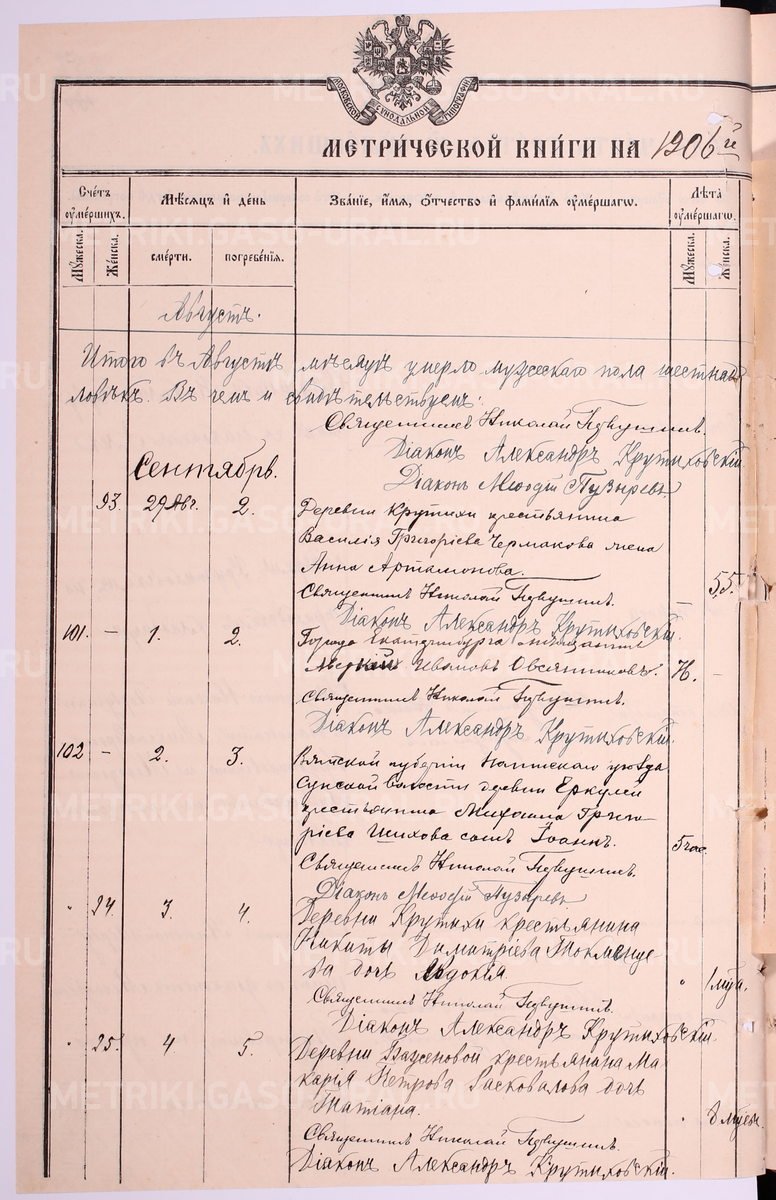 МОСКОВСКОЙ СѴНОДАЛЬНОЙ ТИПОГРАФІИ
МЕТРИ́ЧЕСКОЙ КНИ́ГИ НА 1906й
Счетъ ᲂу҆ме́ршихъ.
Мѣ́сѧцъ и҆ де́нь
Зва́нїе, и҆́мѧ, ѻ҆́тчество и҆ фами́лїѧ ᲂу҆ме́ршагѡ.
Лѣ́та ᲂу҆ме́ршагѡ.
Мꙋ́жеска.
Же́нска.
сме́рти.
погребе́нїѧ.
Мꙋ́жеска.
Же́нска.
Августъ.
Итого въ Августѣ мѣсяцѣ умерло мужескаго пола шестнад
ловѣкъ. Въ чемъ и свидѣтельствуемъ:
Священникъ Николай
Діаконъ Александръ Крутиховскій
Діаконъ Меѳодій Пузыревъ
Сентябрь.
93. 29 Авг. 2. Деревни Крутихи крестьянина
Василія Григоріева Чермакова жена
Анна Артамонова. — 55.
Священникъ Николай
Діаконъ Александръ Крутиховскій.
101. — 1. 2. Города Екатеринбурга мѣщанинъ
Ивановъ Овсянниковъ. Н. -
Священникъ Николай
Діаконъ Александръ Крутиховскій.
102 — 2. 3. Вятской губерніи уѣзда
Сунской волости деревни Еркулей
крестьянина Михаила Григо-
ріева Шихова сынъ Іоаннъ. 5 час.
Священникъ Николай
Діаконъ Меѳодій Пузыревъ
" 24. 3. 4. Деревни Крутихи крестьянина
Никиты Димитріева
ва дочь Евдокія. " 1 мѣс.
Священникъ Николай
Діаконъ Александръ Крутиховскій.
" 25. 4 5. Деревни Баженовой крестьянина Ма
карія Петрова Расковалова дочь
Татіана. " 8 мѣсяц.
Священникъ Николай
Діаконъ Александръ Крутиховскій.
METRIKI.GASO-URAL.RU